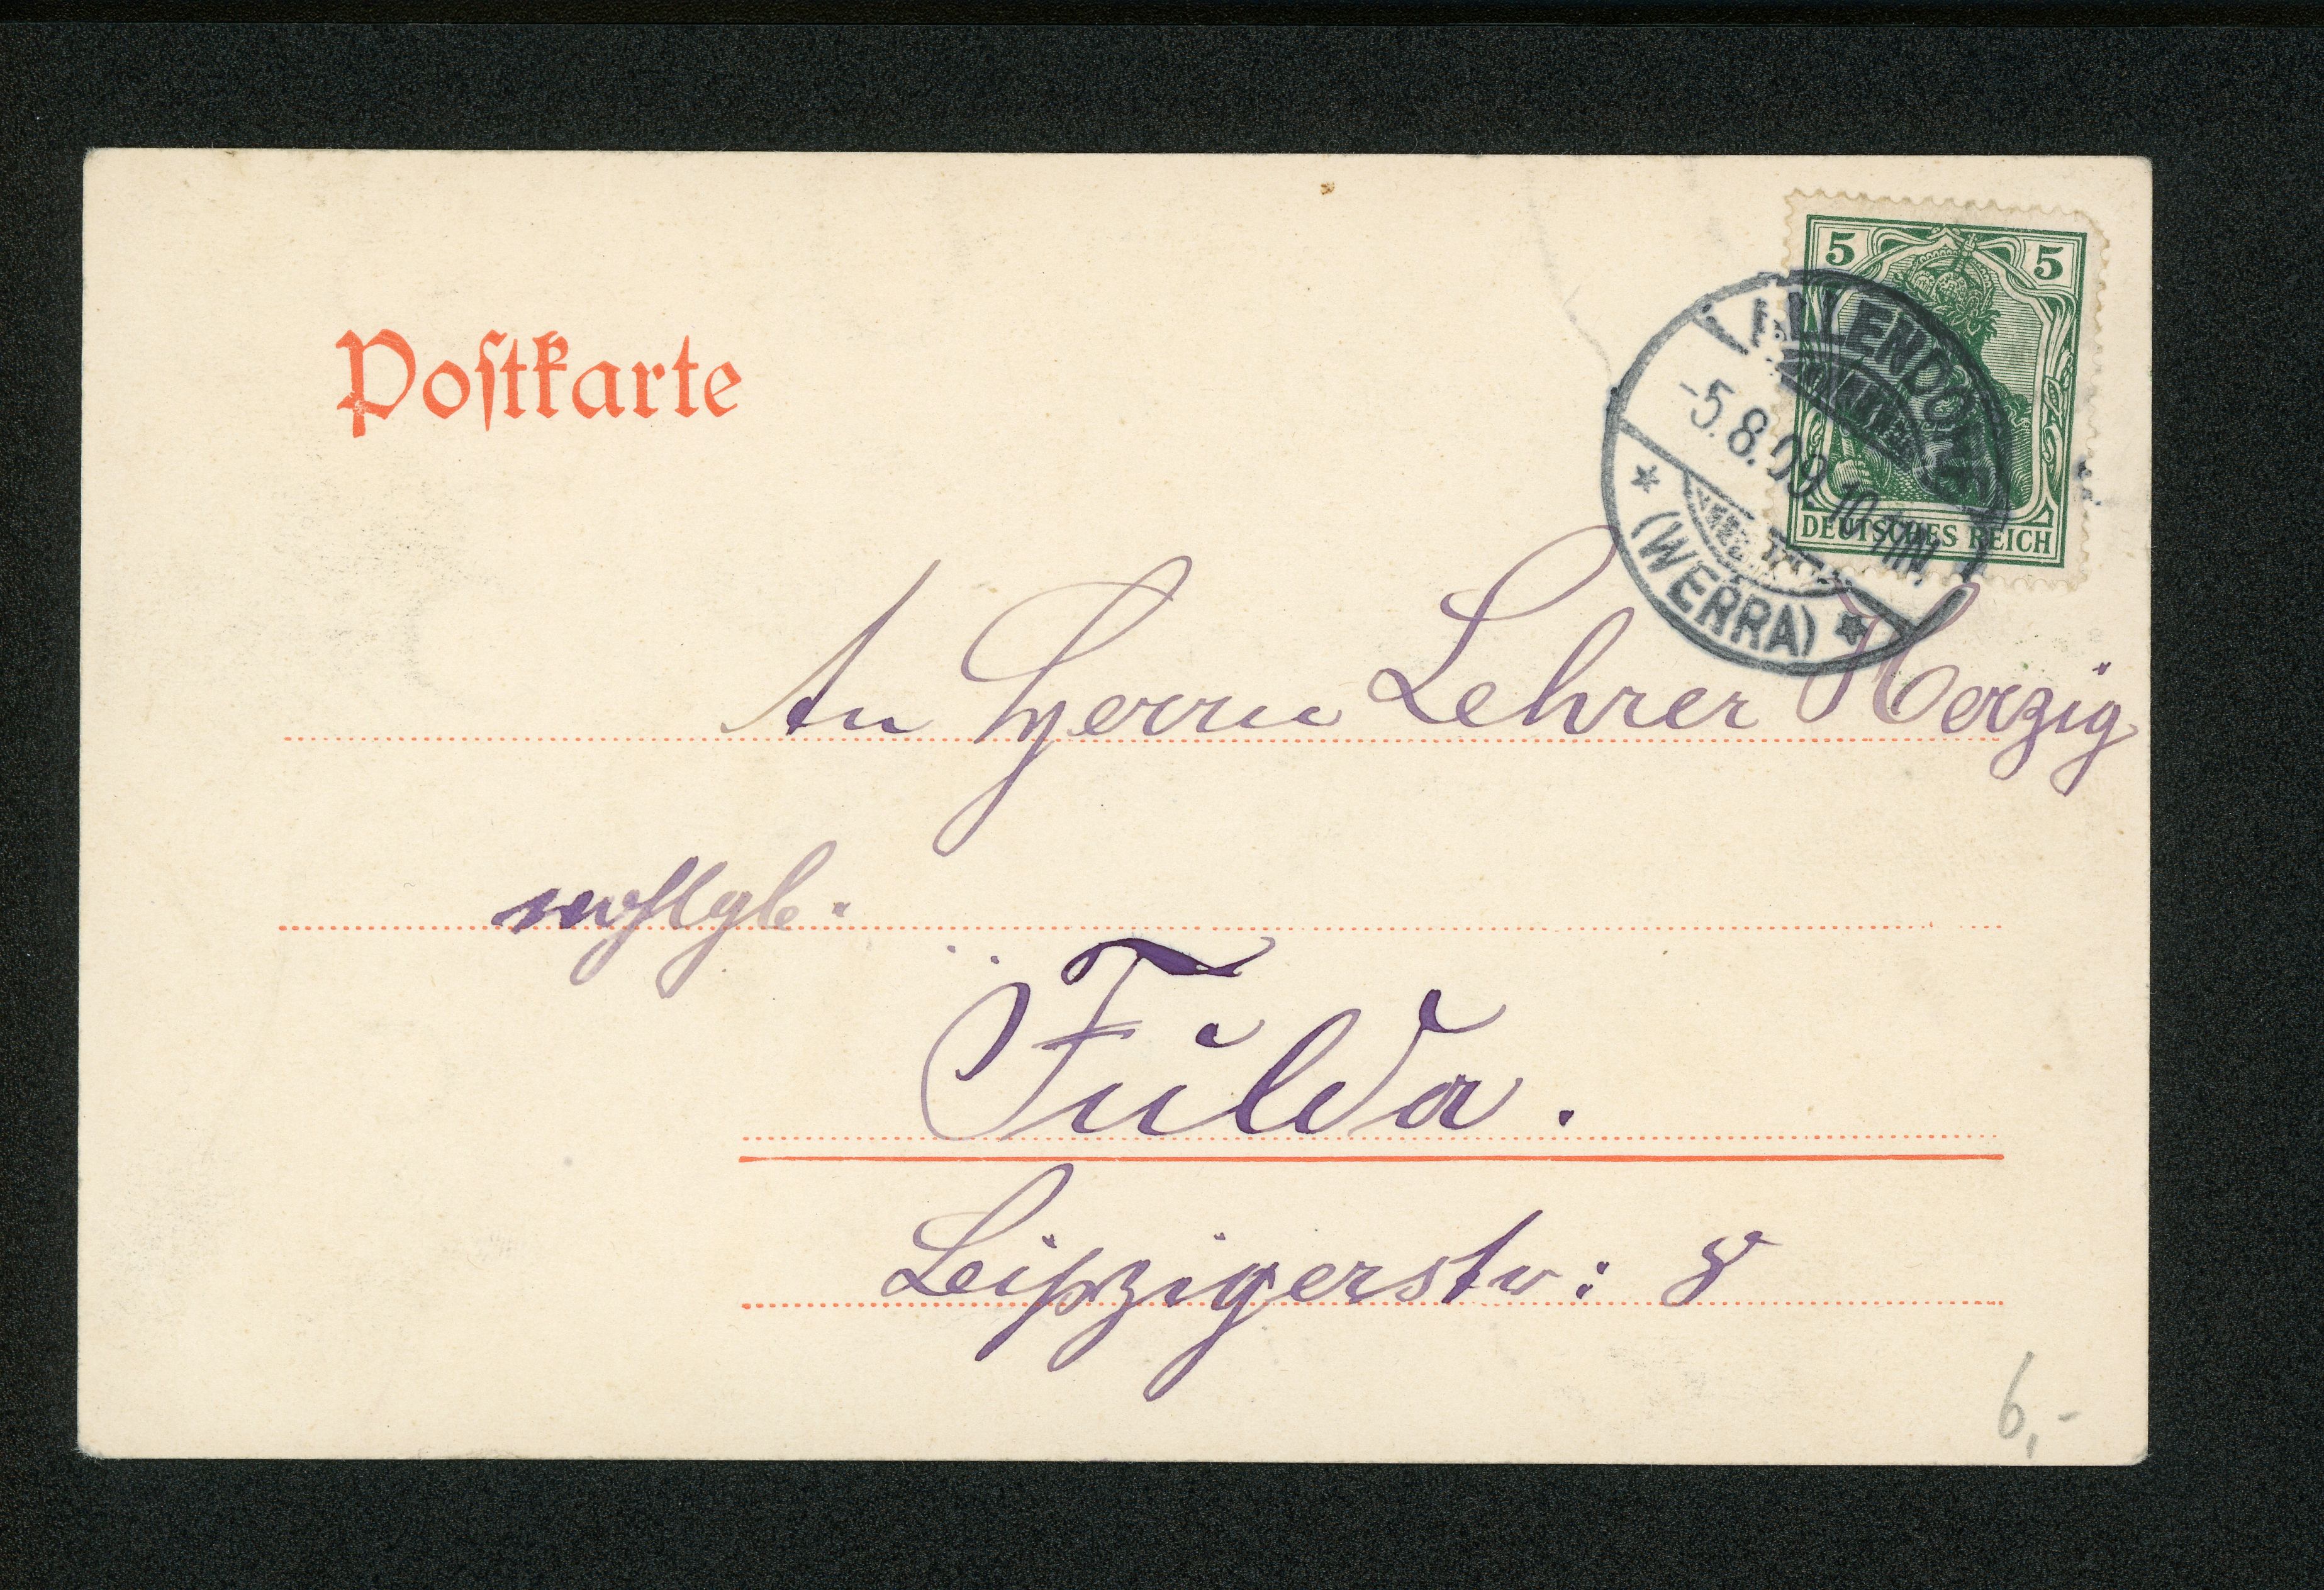 Postkarte
5 5
ALLENDORF
-5.8.09. 10-11N.
(WERRA)
DEUTSCHES REICH
An Herrn Lehrer Herzig
wohlgb.
Fulda.
Leipzigerstr: 8
6,-